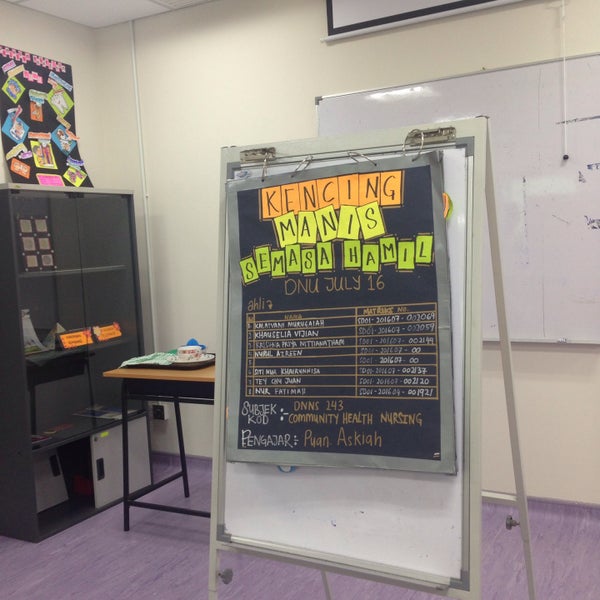 KENCING
MANIS
SEMASA HAMIL
DNU JULY 16
ahli
NAMA MATRIKS NO.
KALAIVANI MURUGAIAH SD01-201607-002064
KHAUSELIA VIJIAN SD01-201607-002059
KRISHNA PRIYA NITTIANATHAM SD01-201607-002144
NURUL AZREEN SD01-201607-00
SITI NUR KHAIRUNNISA SD01-201607-002137
TEY CHI JUAN SD01-201607-002120
NUR FATIMAS SD01-201604-001921
SUBJEK KOD : DNNS 243
COMMUNITY HEALTH NURSING
PENGAJAR : Puan. Askiah